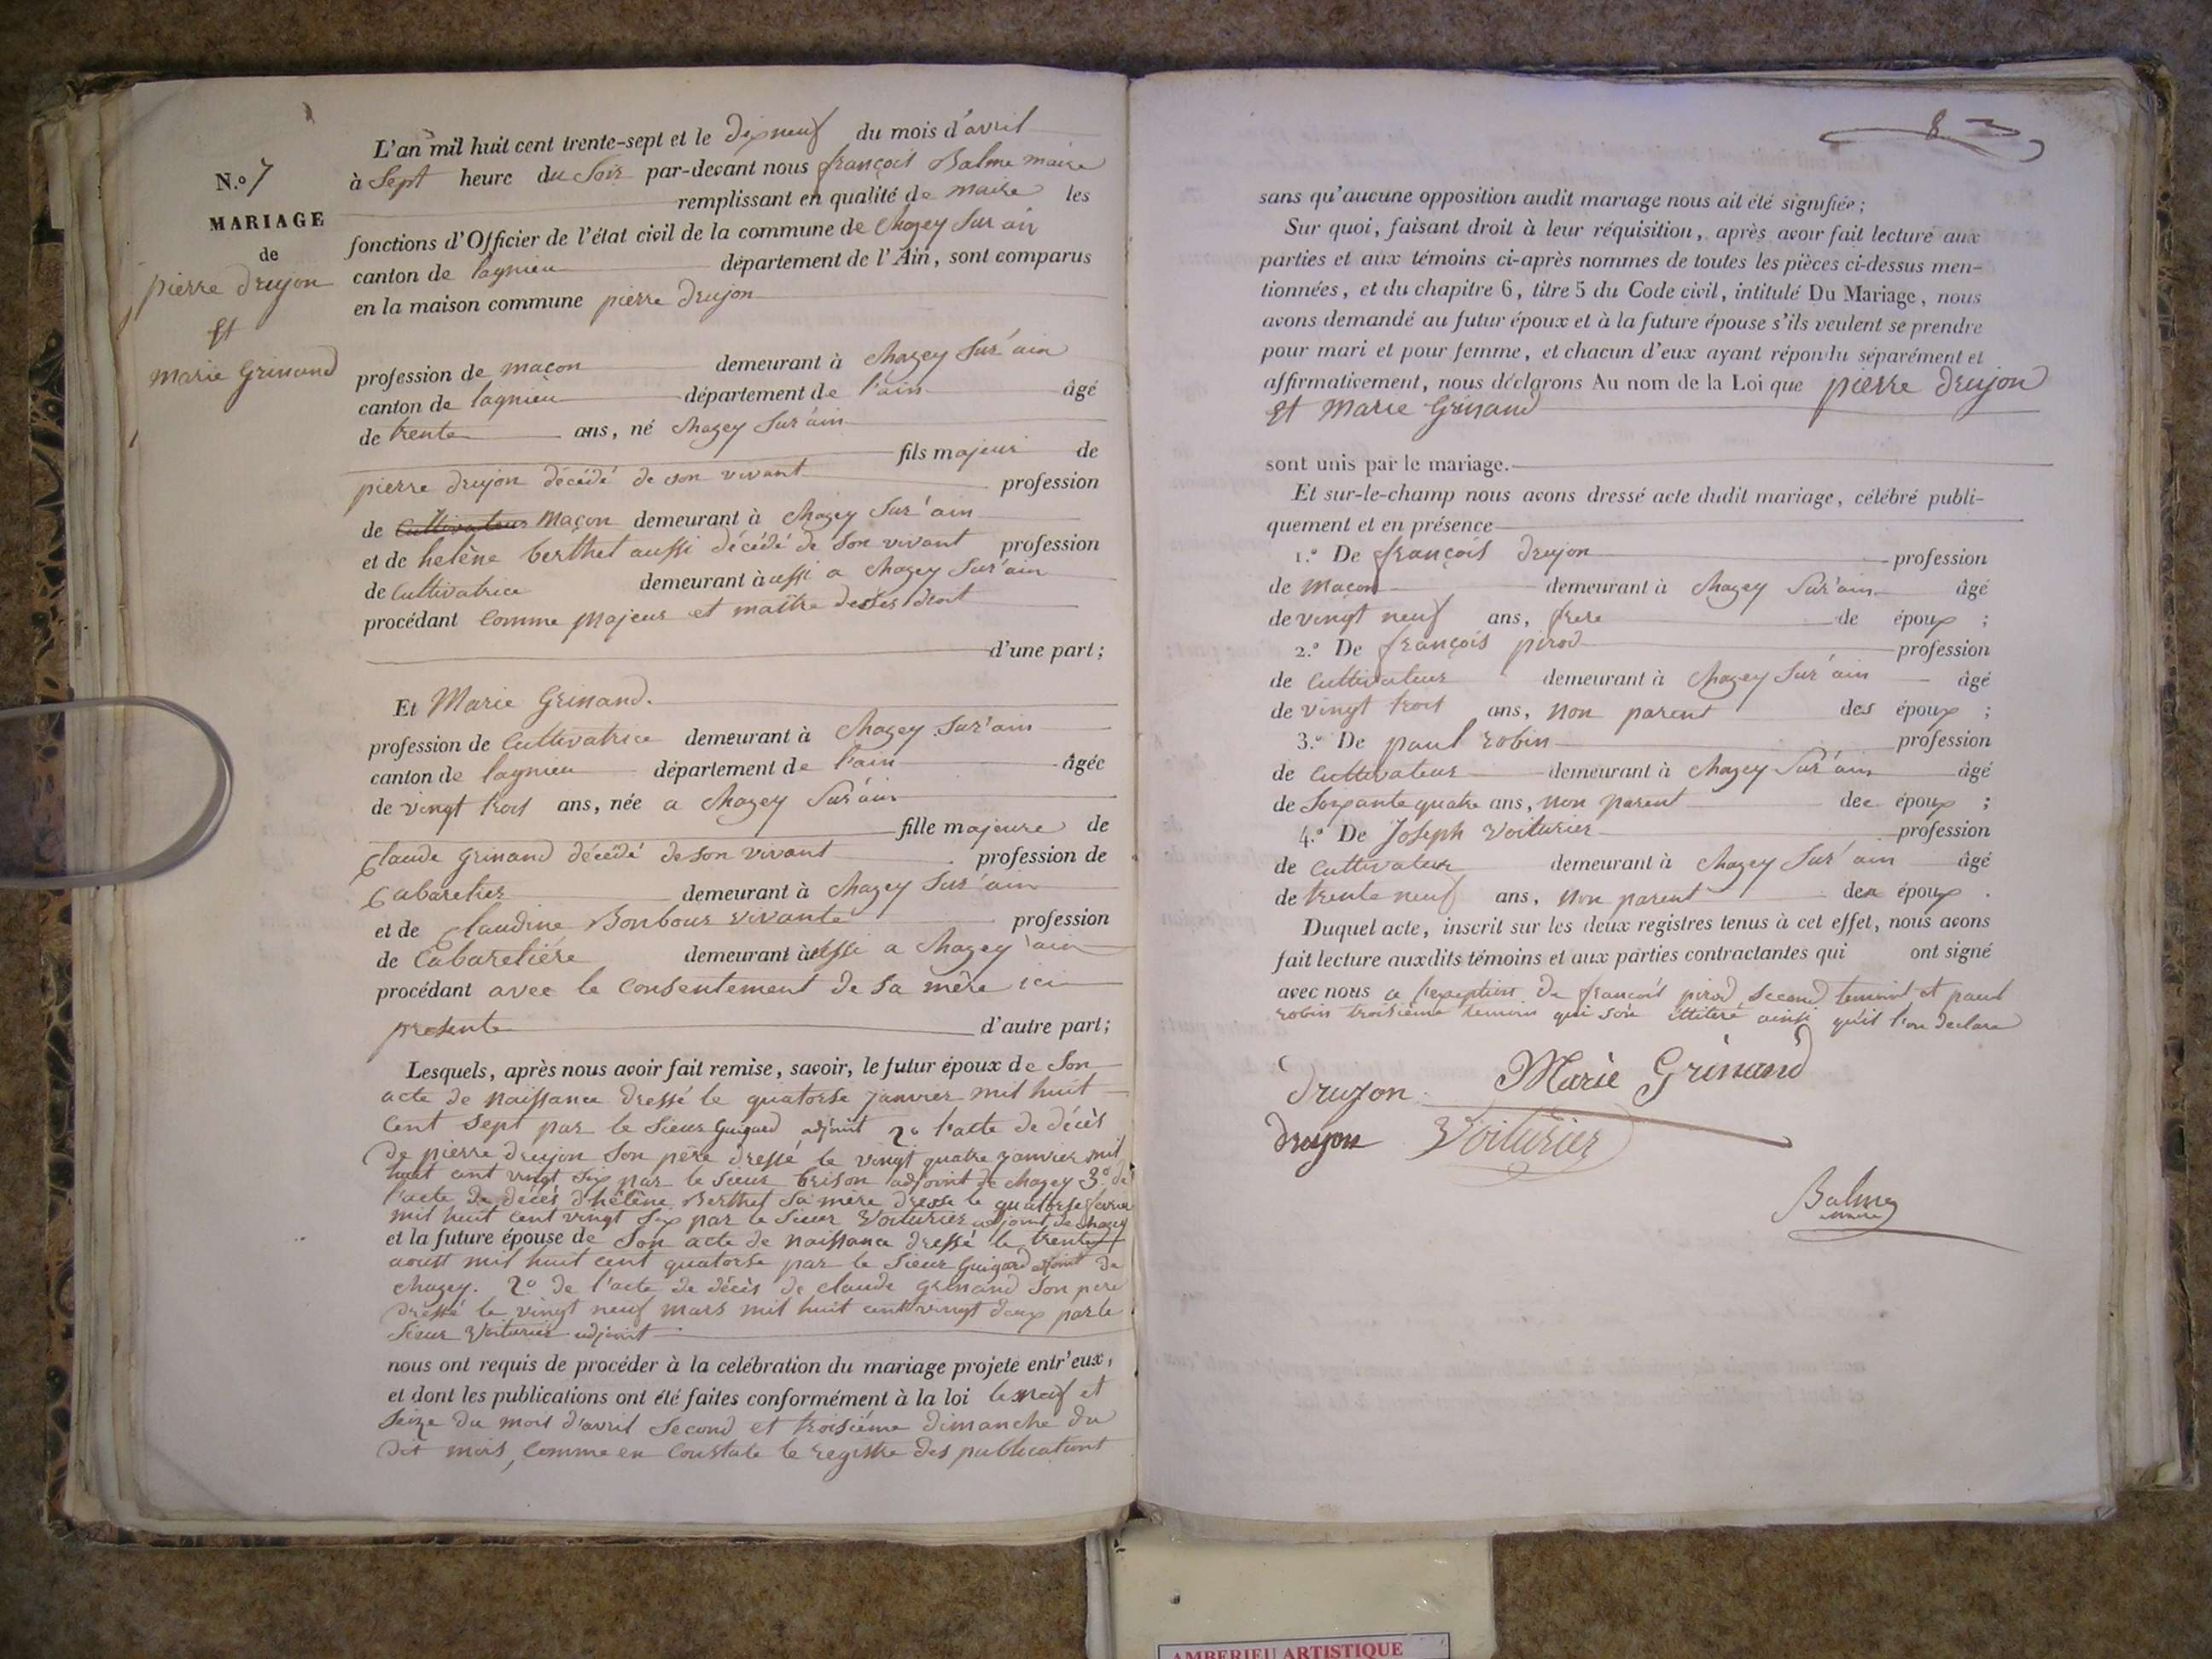 N.o 7
MARIAGE
de
pierre drujon
et
marie Grinand
L'an mil huit cent trente-sept et le dixneuf du mois d'avril
à Sept heure du Soir par-devant nous françois Balme maire
remplissant en qualité de maire les
fonctions d'Officier de l'état civil de la commune de chazey Sur ain
canton de lagnieu département de l'Ain, sont comparus
en la maison commune pierre drujon
profession de maçon demeurant à chazey Sur'ain
canton de lagnieu département de l'ain âgé
de trente ans, né chazey Sur'ain
fils majeur de
pierre drujon décédé de son vivant profession
de Cultivateur Maçon demeurant à chazey Sur'ain
et de helène berthet aussi décédé de Son vivant profession
de Cultivatrice demeurant àussi a chazey Sur'ain
procédant Comme Majeur et maitre de Ses droit
d'une part;
Et Marie Grinand.
profession de Cultivatrice demeurant à chazey Sur'ain
canton de lagnieu département de l'ain âgée
de vingt trois ans, née a chazey Sur'ain
fille majeure de
Claude Grinand décédé de son vivant profession de
Cabaretier demeurant à chazey Sur'ain
et de Claudine Bonbour vivante profession
de Cabaretiére demeurant àussi a chazey 'ain
procédant avec le Consentement de Sa mère ici
presente d'autre part;
Lesquels, après nous avoir fait remise, savoir, le futur époux de Son
acte de naissance dressé le quatorse janvier mil huit
cent Sept par le Sieur Guigard adjoint 2o l'acte de décès
de pierre drujon Son père dressé le vingt quatre janvier mil
huit cent vingt Six par le Sieur brison adjoint de chazey 3o de
l'acte de décès d'hélène Berthet Sa mère dressé le quatorse fevrier
mil huit cent vingt Six par le Sieur Voiturier adjoint de chazey
et la future épouse de Son acte de naissance dressé le trente
aoust mil huit cent quatorse par le Sieur Guigard adjoint de
chazey. 2o de l'acte de décès de claude Grinand Son pere
dressé le vingt neuf mars mil huit cent vingt deux par le
Sieur Voiturier adjoint
nous ont requis de procéder à la célébration du mariage projeté entr'eux,
et dont les publications ont été faites conformément à la loi le neuf et
Seize du mois d'avril Second et troisième dimanche du
dit mois, Comme en Constate le registre des publications
8
sans qu'aucune opposition audit mariage nous ait été signifiée;
Sur quoi, faisant droit à leur réquisition, après avoir fait lecture aux
parties et aux témoins ci-après nommes de toutes les pièces ci-dessus men-
tionnées, et du chapitre 6, titre 5 du Code civil, intitulé Du Mariage, nous
avons demandé au futur époux et à la future épouse s'ils veulent se prendre
pour mari et pour femme, et chacun d'eux ayant répondu séparément et
affirmativement, nous déclarons Au nom de la Loi que pierre drujon
et Marie Grinand
sont unis par le mariage.
Et sur-le-champ nous avons dressé acte dudit mariage, célébré publi-
quement et en présence
1.o De françois drujon profession
de maçon demeurant à chazey Sur'ain âgé
de vingt neuf ans, frere de époux ;
2.o De françois pirod profession
de Cultivateur demeurant à chazey Sur'ain âgé
de vingt trois ans, non parent des époux ;
3.o De paul robin profession
de Cultivateur demeurant à chazey Sur'ain âgé
de Soixante quatre ans, non parent des époux ;
4.o De Joseph Voiturier profession
de Cultivateur demeurant à chazey Sur'ain âgé
de trente neuf ans, non parent des époux .
Duquel acte, inscrit sur les deux registres tenus à cet effet, nous avons
fait lecture auxdits témoins et aux parties contractantes qui ont signé
avec nous a l'exeption de françois pirod second temoint et paul
robin troisième temoin qui son illitéré ainsi qu'il l'on declaré
drujon Marie Grinand
drujon Voiturier
Balme
maire
AMBERIEU ARTISTIQUE